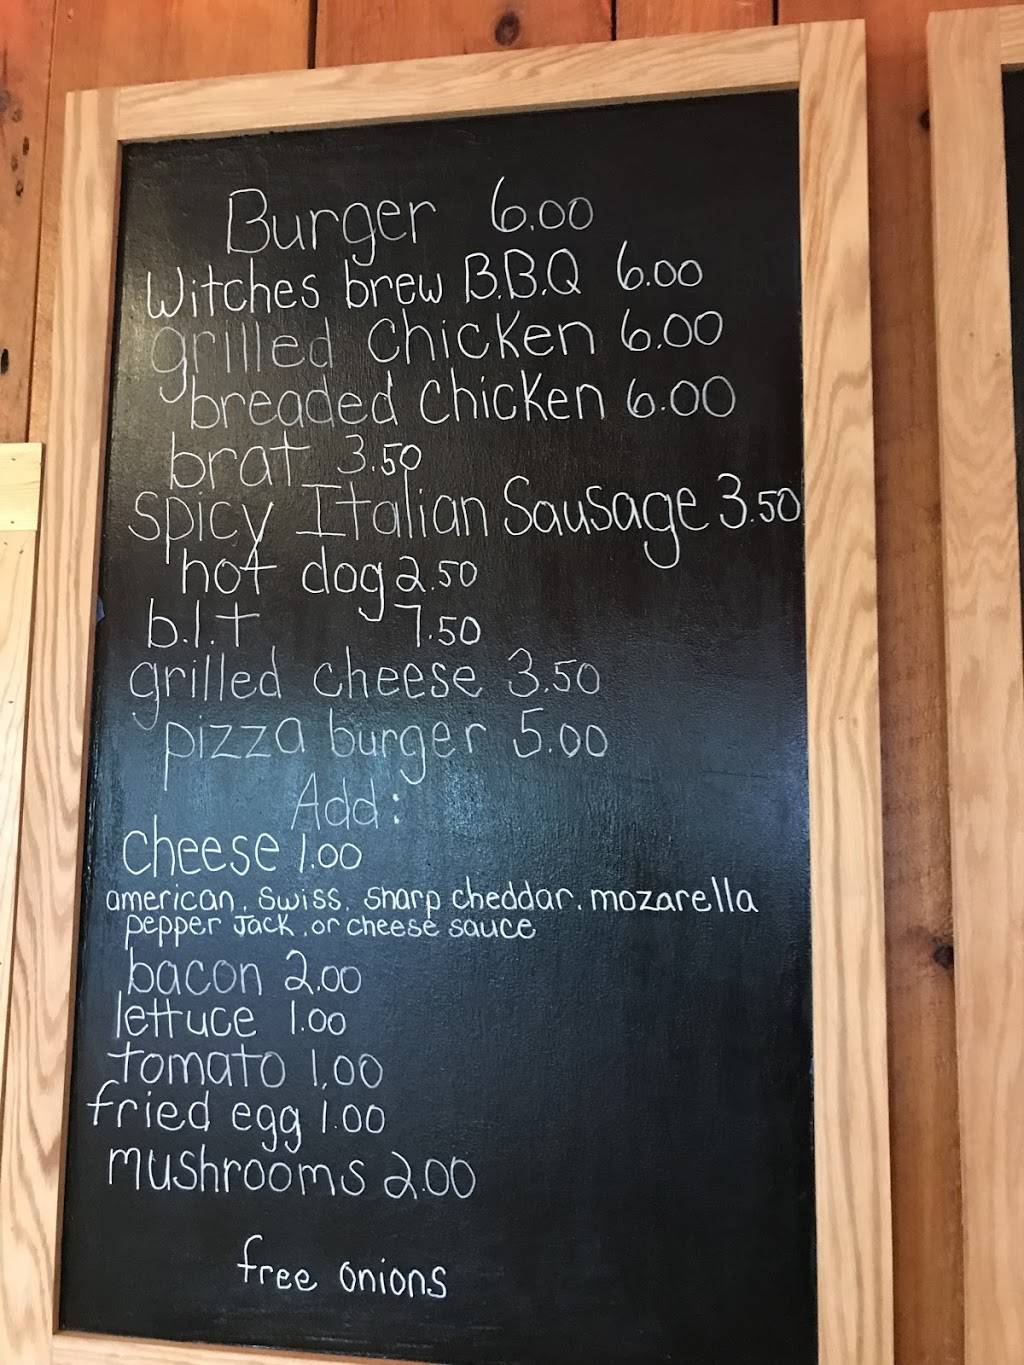 Burger 6.00
Witches brew B.B.Q 6.00
grilled chicken 6.00
breaded chicken 6.00
brat 3.50
Spicy Italian Sausage 3.50
hot dog 2.50
b.l.t 7.50
grilled cheese 3.50
pizza burger 5.00
Add:
cheese 1.00
american, swiss, sharp cheddar, mozarella
pepper Jack, or cheese sauce
bacon 2.00
lettuce 1.00
tomato 1.00
fried egg 1.00
mushrooms 2.00
free onions